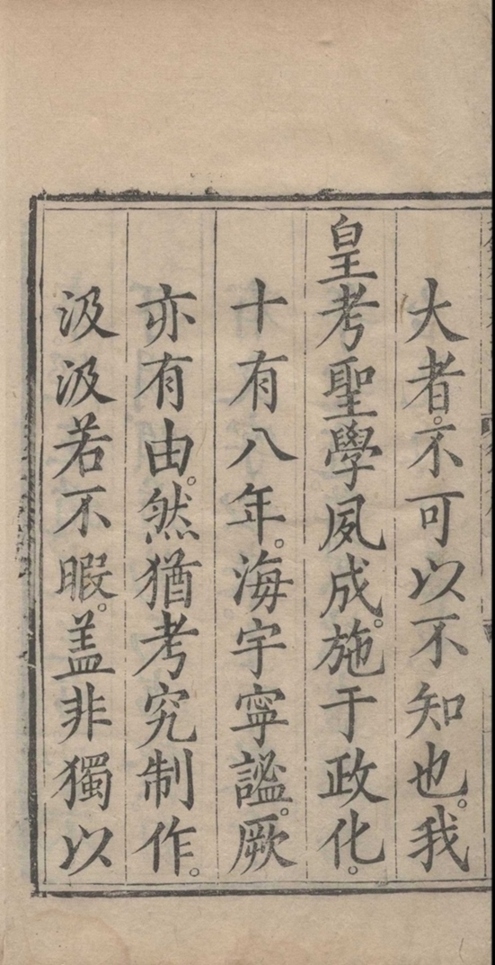 大者。不可以不知也。我
皇考聖學夙成。施于政化。
十有八年。海宇寧謐。厥
亦有由。然猶考究制作。
汲汲若不暇。蓋非獨以